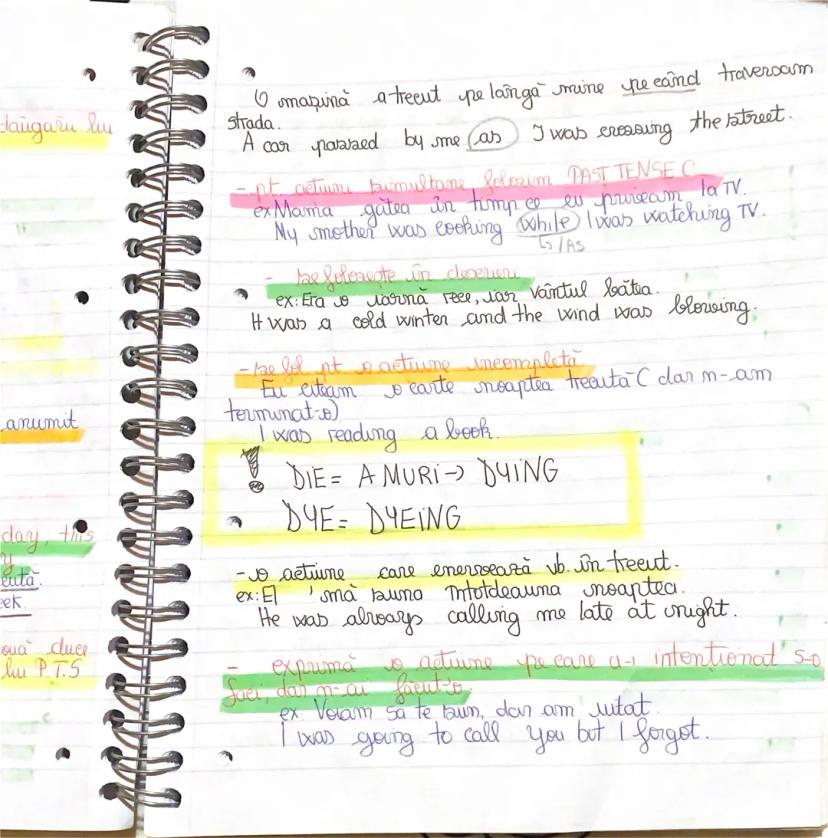 dăugarii lui
anumit
day, this
y
eută.
eek.
ouă duce
lui P.T.S
O mașină a trecut pe lângă mine pe când traversam
strada.
A car passed by me as I was crossing the street.
- pt. acțiuni simultane folosim PAST TENSE C
ex Mama gătea în timp ce eu priveam la TV.
My mother was cooking while I was watching TV.
↳/AS
- se folosește în descrieri
ex: Era o iarnă rece, iar vântul bătea.
It was a cold winter and the wind was blowing.
- se fol pt o acțiune incompletă
Eu citeam o carte noaptea trecută ( dar n-am
terminat-o)
I was reading a book.
! DIE = A MURI → DYING
DYE = DYEING
- o acțiune care enervează vb. în trecut.
ex: El mă suna întotdeauna noaptea.
He was always calling me late at night.
- exprimă o acțiune pe care ai intenționat s-o
faci, dar n-ai făcut-o
ex Voiam să te sun, dar am uitat.
I was going to call you but I forgot.